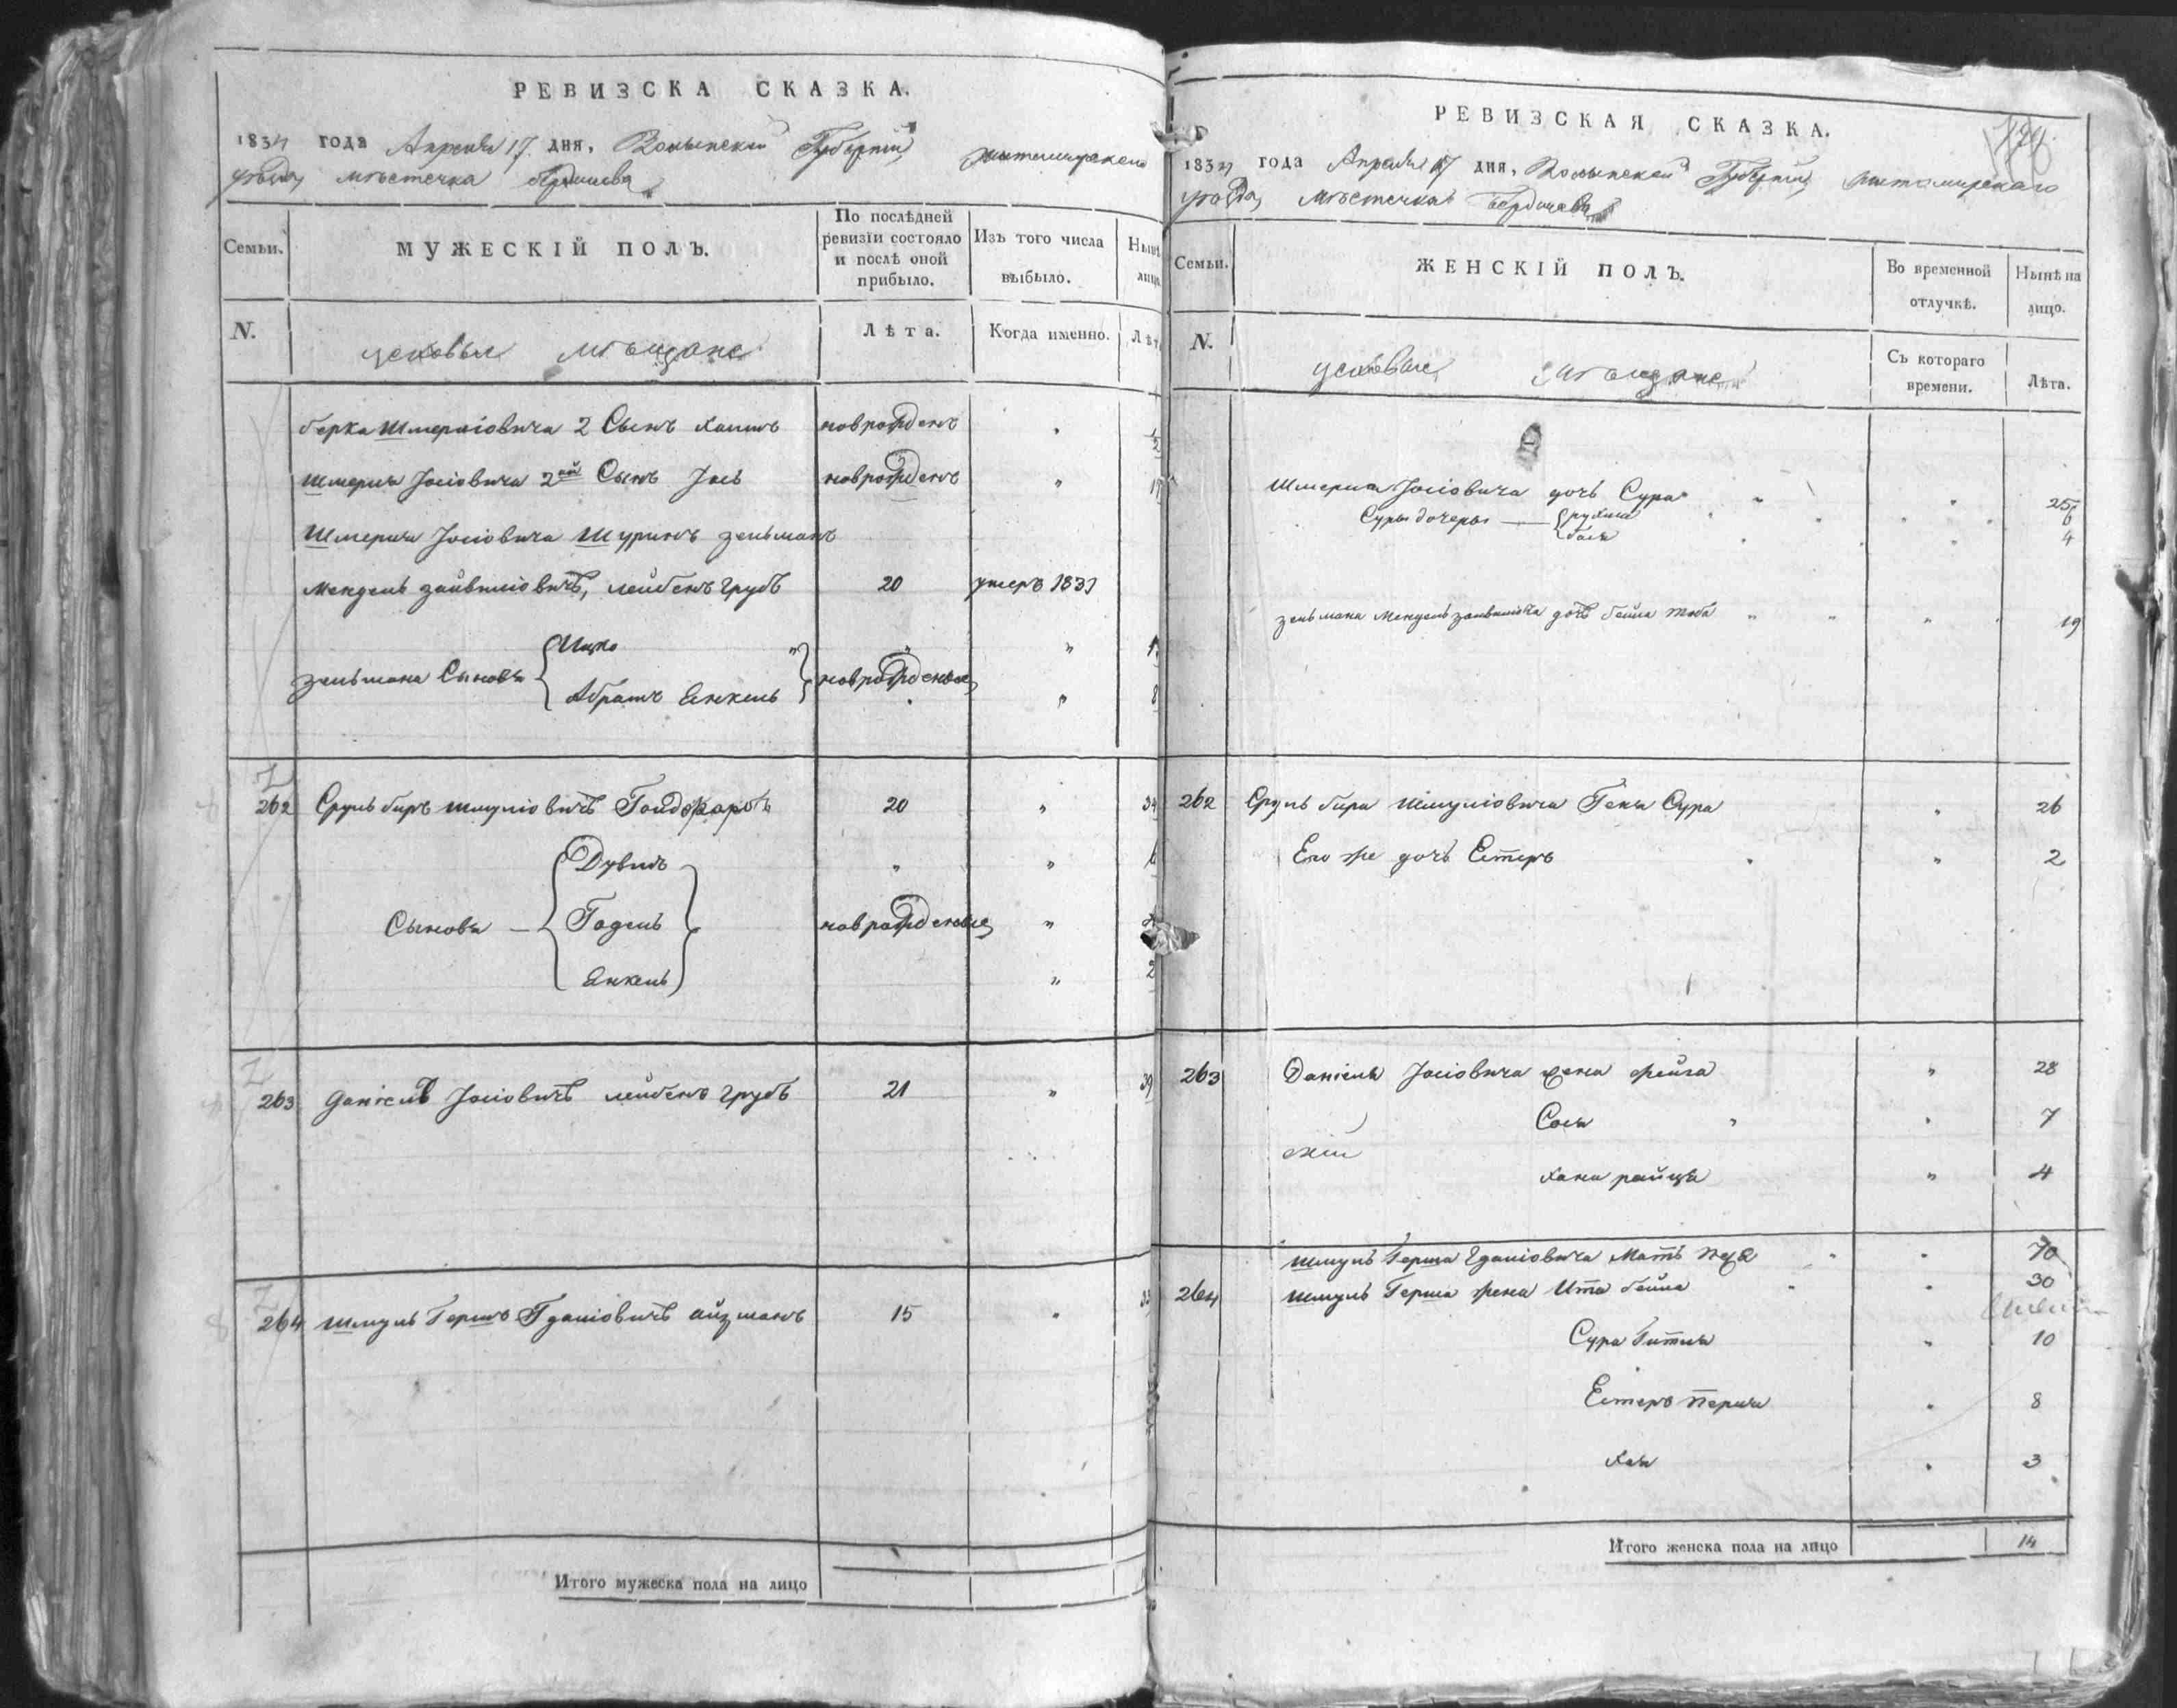 РЕВИЗСКА СКАЗКА.
1834 года Апреля 17 дня, Волынской Губерніи Житомирскаго
уѣзда, мѣстечка Бердичева
Семьи.
МУЖЕСКІЙ ПОЛЪ.
По послѣдней
ревизіи состояло
и послѣ оной
прибыло.
Изъ того числа
выбыло.
N.
Лѣта.
Когда именно.
мѣщане
берка Шмеріовича 2 Сынъ хаимъ новрожденъ
Шмерия Іосіовича 2ой Сынъ Іось новрожденъ
Шмерия Іосіовича Шуринъ зельманъ
мендель зайвеліовичъ, лейбенъ грубъ 20 умеръ 1831
зельмана Сыновья Ицко
Абрамъ Енкель новрожденые 8
262 Сруль биръ шмуліовичъ 20 34
Дувидъ
Сыновья Годель новрожденые
Енкель 2
263 Даніель Іосіовичъ лейбенъ грубъ 21 39
264 Шмуль Гершъ айзманъ 15
Итого мужеска пола на лицо
РЕВИЗСКАЯ СКАЗКА.
1834 года Апреля 17 дня, Волынской Губерніи Житомирскаго
уѣзда, мѣстечка Бердичева
Семьи.
ЖЕНСКІЙ ПОЛЪ.
Во временной
отлучкѣ.
Нынѣ на
лицо.
N.
Съ котораго
времени.
Лѣта.
мѣщане
Шмерия Іосіовича дочь Сура 25
Суры дочеры рухля 6
бася 4
зельмана мендель зайвеліовича дочь бейла тоба 19
262 Сруль бира Шмуліовича Жена Сура 26
Его же дочь Естеръ 2
263 Даніеля Іосіовича жена фейга 28
Сося 7
хана райца 4
Шмуль Герша Мать 70
264 Шмуль Герша жена Ита бейла 30
Сура Гитля 10
Естеръ перля 8
хая 3
Итого женска пола на лицо 14